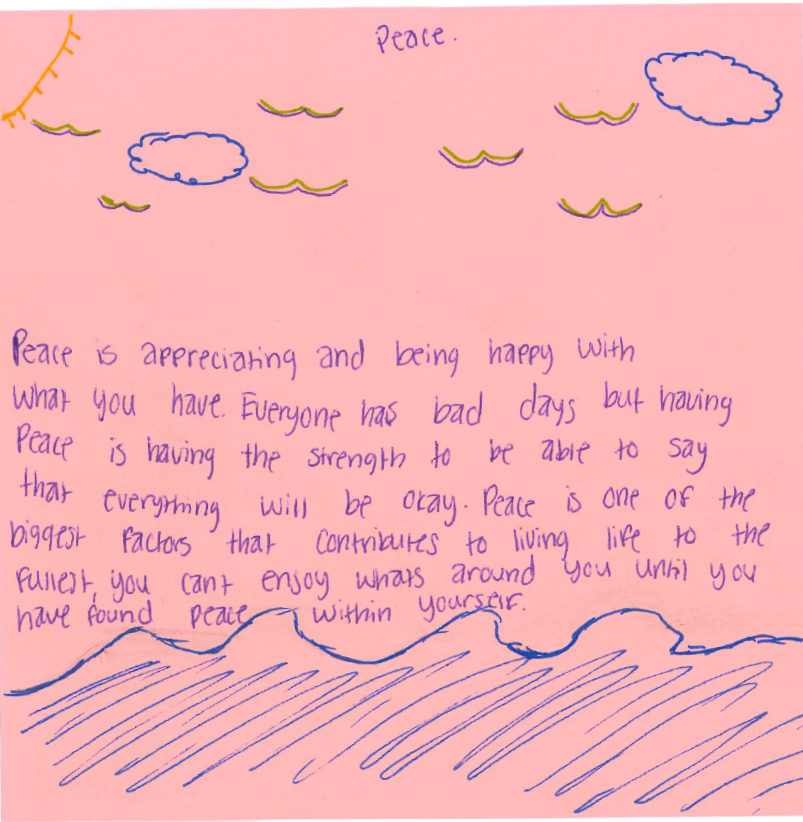 Peace.
Peace is appreciating and being happy with
what you have. Everyone has bad days but having
Peace is having the strength to be able to say
that everything will be okay. Peace is one of the
biggest factors that contributes to living life to the
fullest, you cant enjoy whats around you until you
have found peace within yourself.